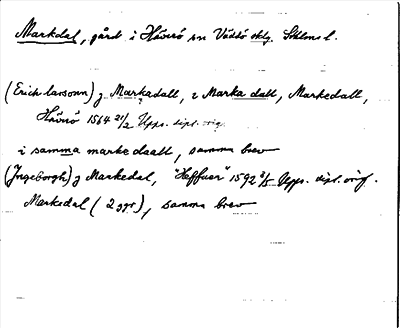 Markdal, gård i Häverö sn Väddö sklg. Sthlms l.
(Erich larsonn) j Markadall, i Marka dall, Markedall,
Häverö 1564 21/2 Upps. dipl. orig.
i samma marke daall, samma brev
(Jngeborgh) j Markedal, "Heffuer" 1592 8/5 Upps. dipl. orig.
Markedal (2 ggr), samma brev